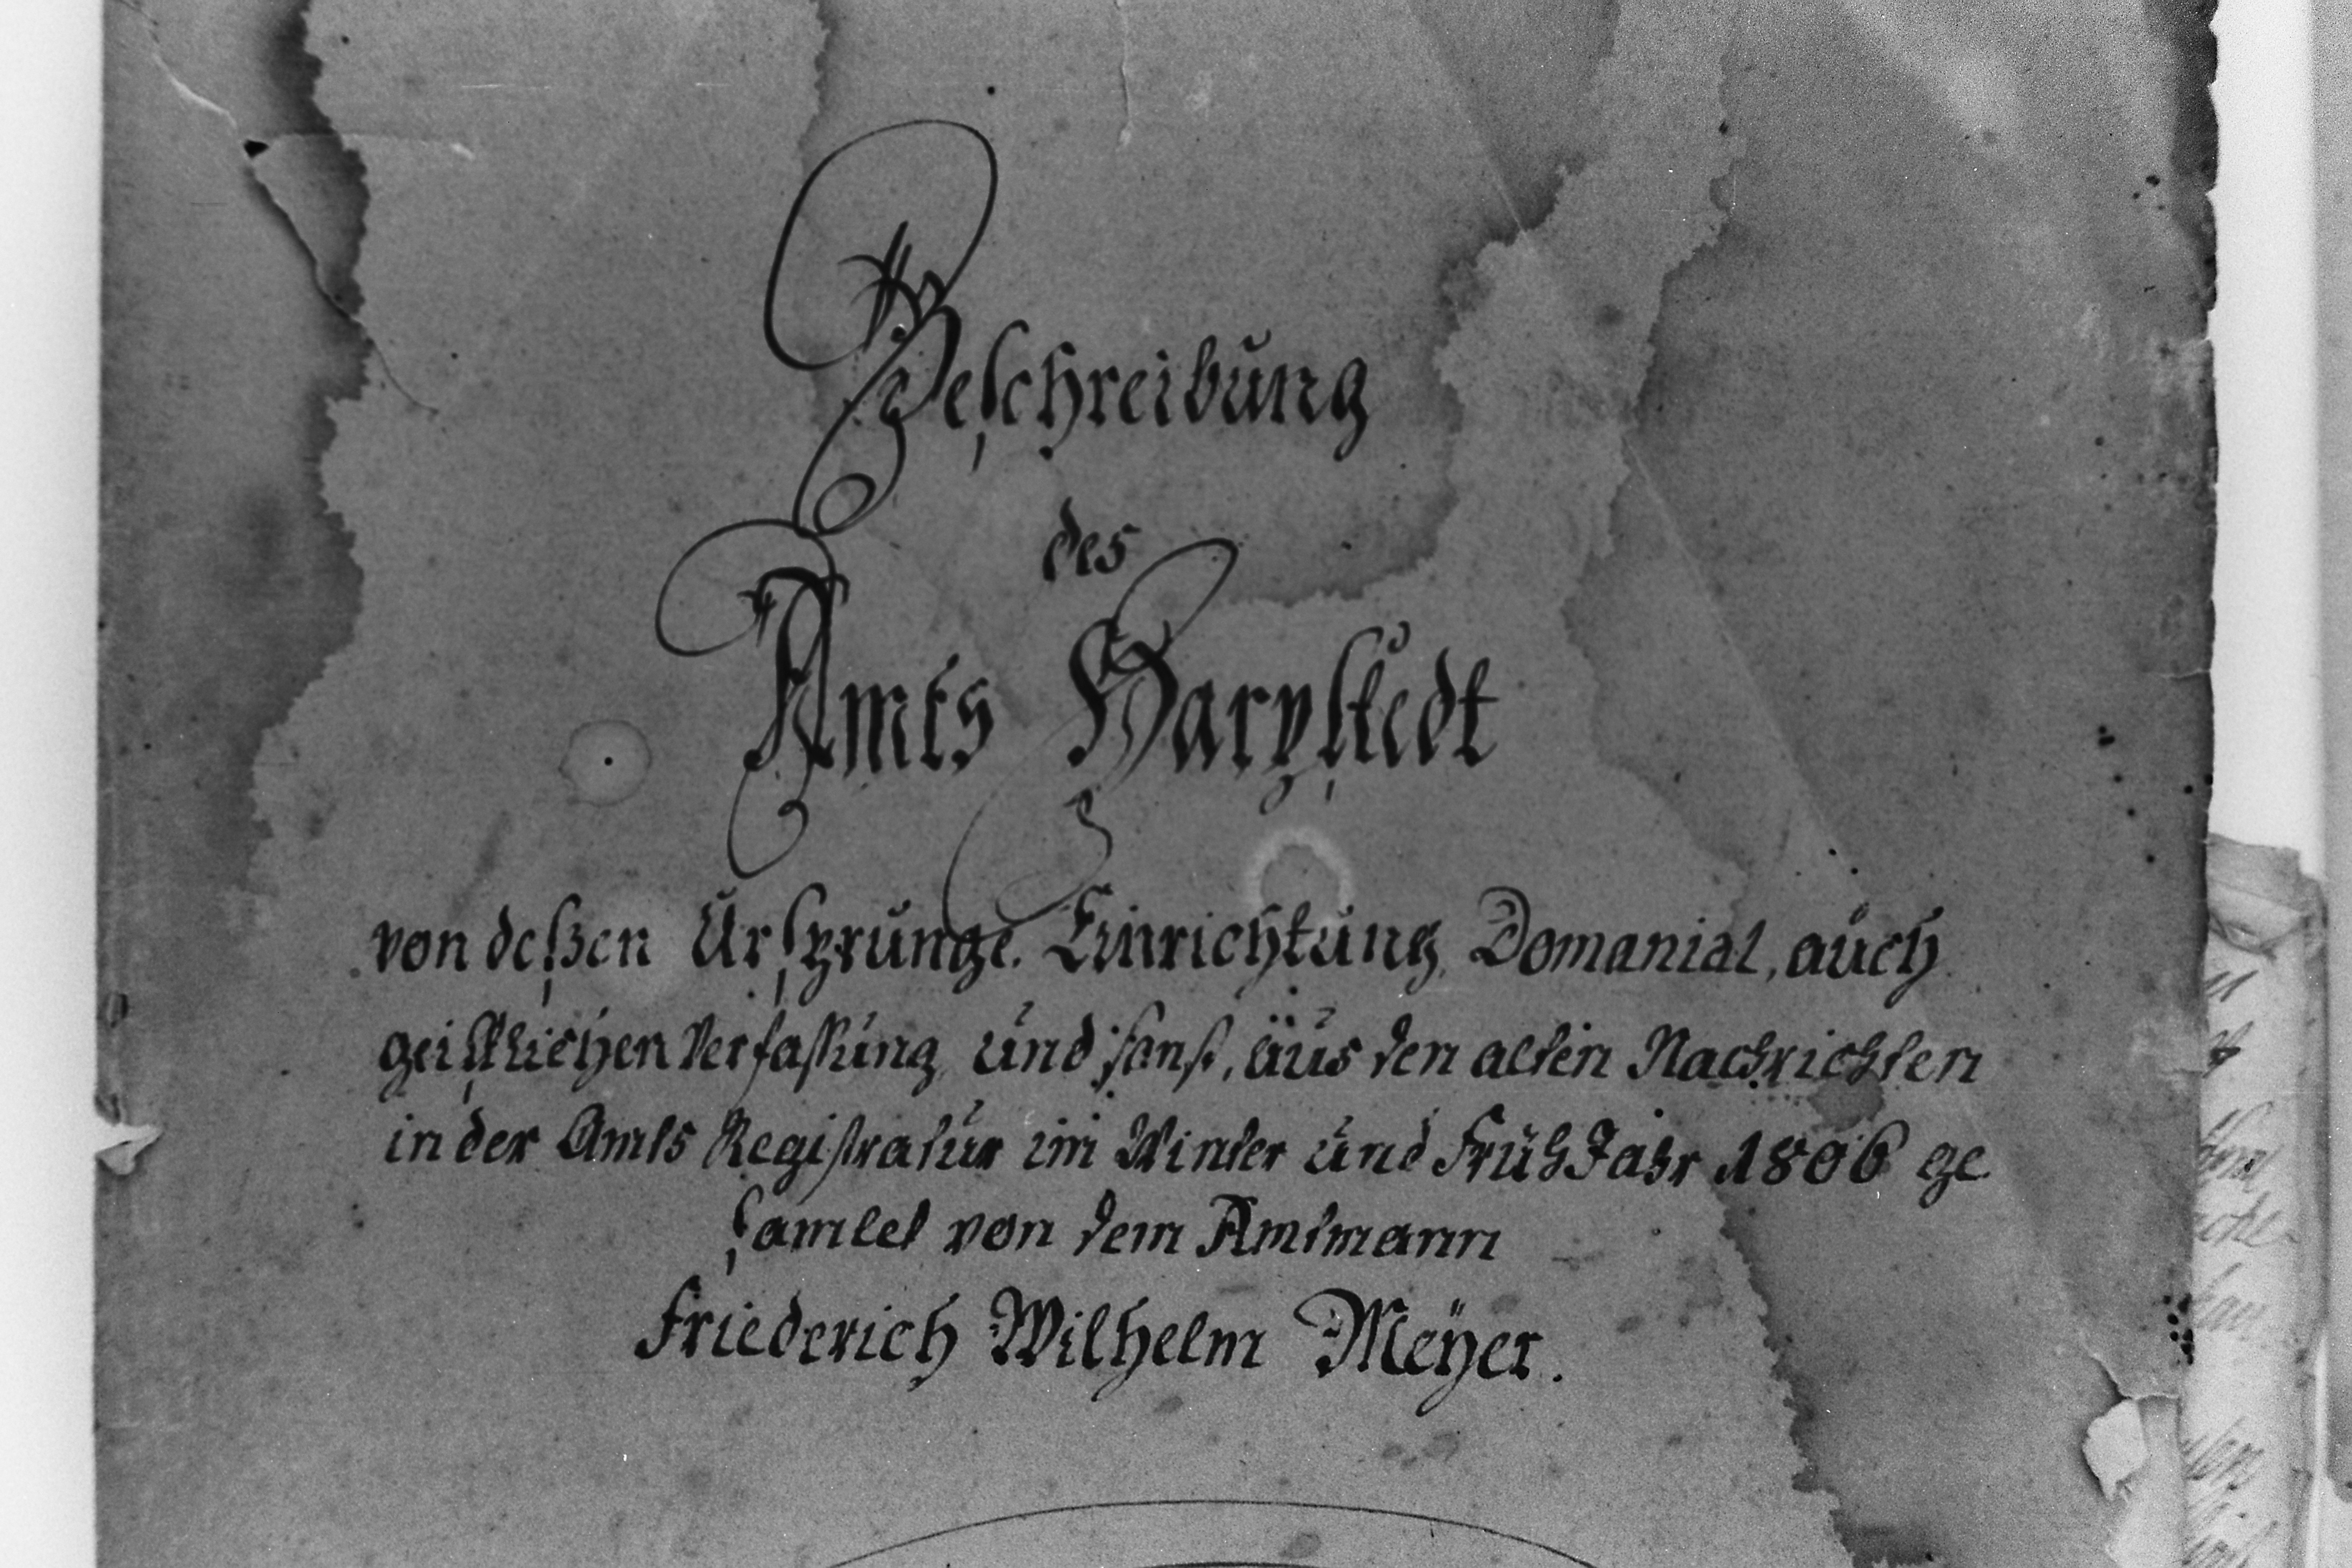 Beschreibung
des
Amts Harpstedt
von deßen Ursprunge. Einrichtung, Domanial, auch
geistlichen Verfassung und sonst, aus den alten Nachrichten
in der Amts Registratur im Winter und FrühJahr 1806 ge
samlet von dem Amtmann
Friederich Wilhelm Meÿer.